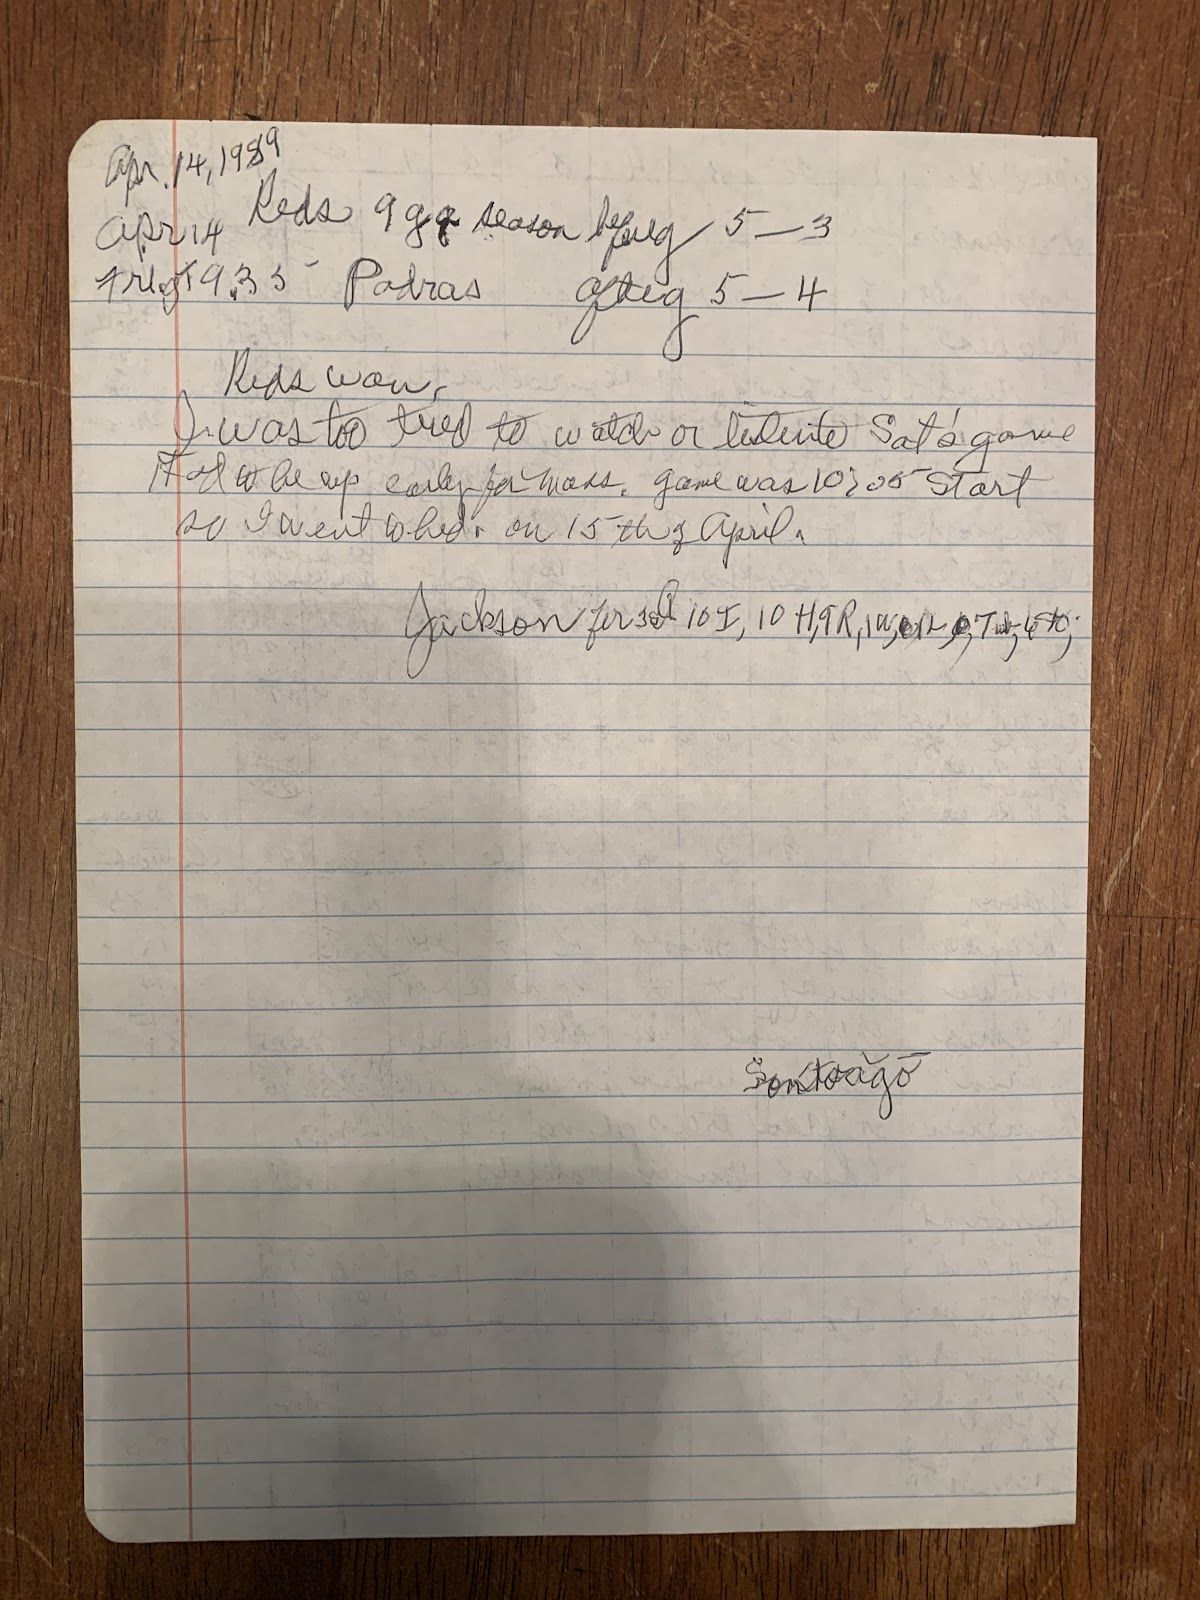 Apr. 14, 1989
Apr 14 Reds 9 g season before g 5-3
9.35 Padras after g 5-4
Reds won,
I was too tred to watch or listen to Sat's game
Had to be up early for mass. game was 10:05 start
so I went to bed. on 15th of April.
Jackson for 3d 10 I, 10 H, 9 R,
Sontoago